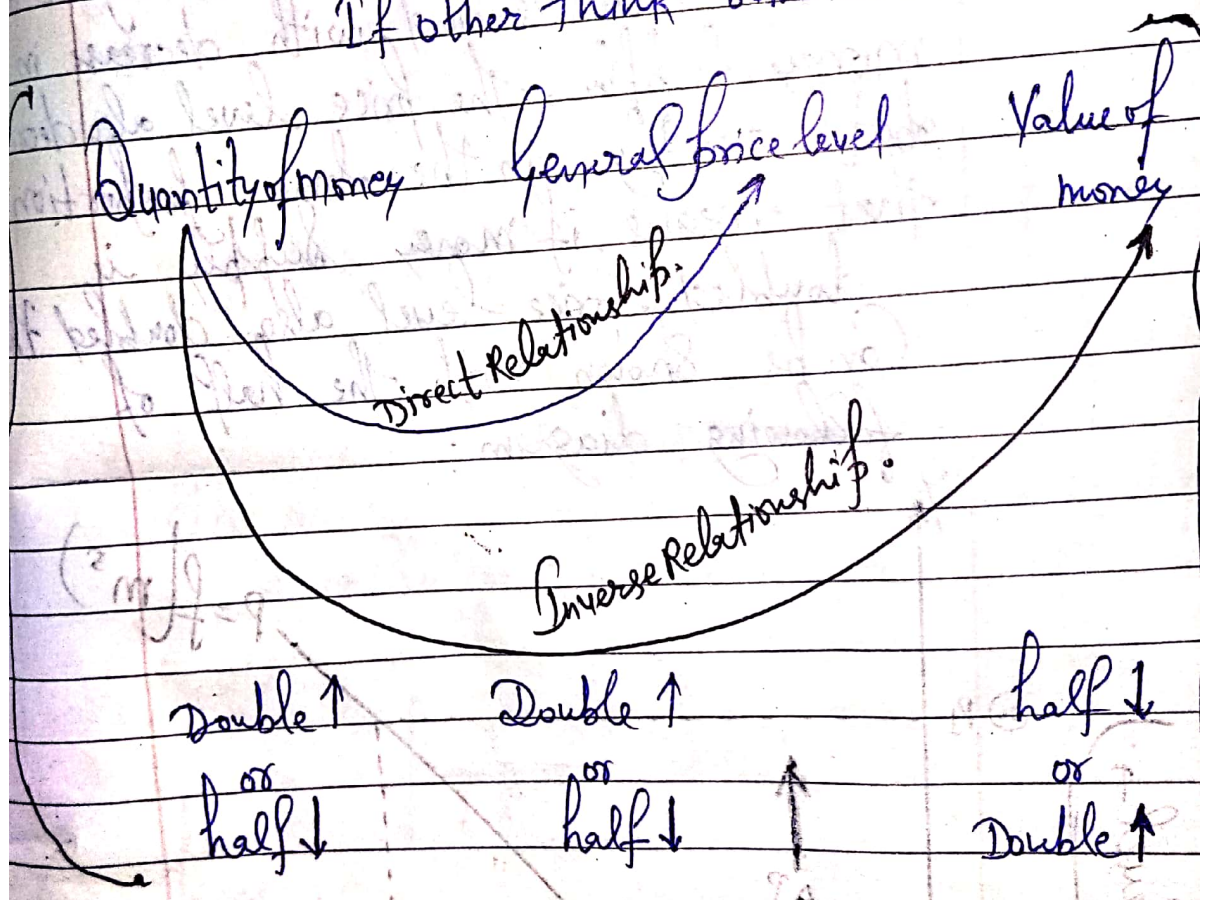 If other Think
Quantity of money General price level Value of
money
Direct Relationship.
Inverse Relationship.
Double ↑ Double ↑ half ↓
or or or
half ↓ half ↓ Double ↑